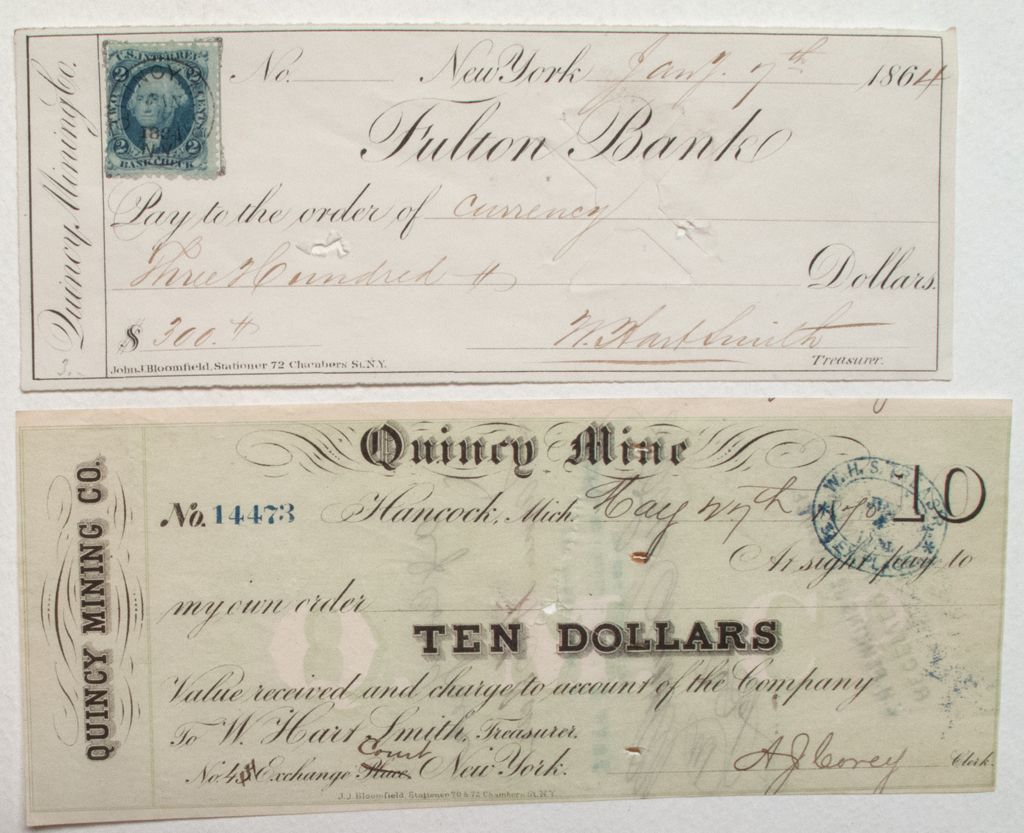 Quincy Mining Co.
U.S. INTER. REV.
2 2
TWO CENTS
1864
N.Y.
2 2
BANK CHECK
No. New York Jany. 7th 1864
Fulton Bank
Pay to the order of currency
Three Hundred Dollars.
$ 300.
W. Hart Smith
Treasurer.
3.
John J Bloomfield, Stationer 72 Chambers St. N.Y.
QUINCY MINING CO.
Quincy Mine
10
No. 14473 Hancock, Mich. May 27th
At sight pay to
my own order
TEN DOLLARS
Value received and charge to account of the Company
To W. Hart Smith, Treasurer.
Court
No. 4 Exchange Place, New York.
A J Corey Clerk.
J. J. Bloomfield, Stationer 70 & 72 Chambers St. N.Y.